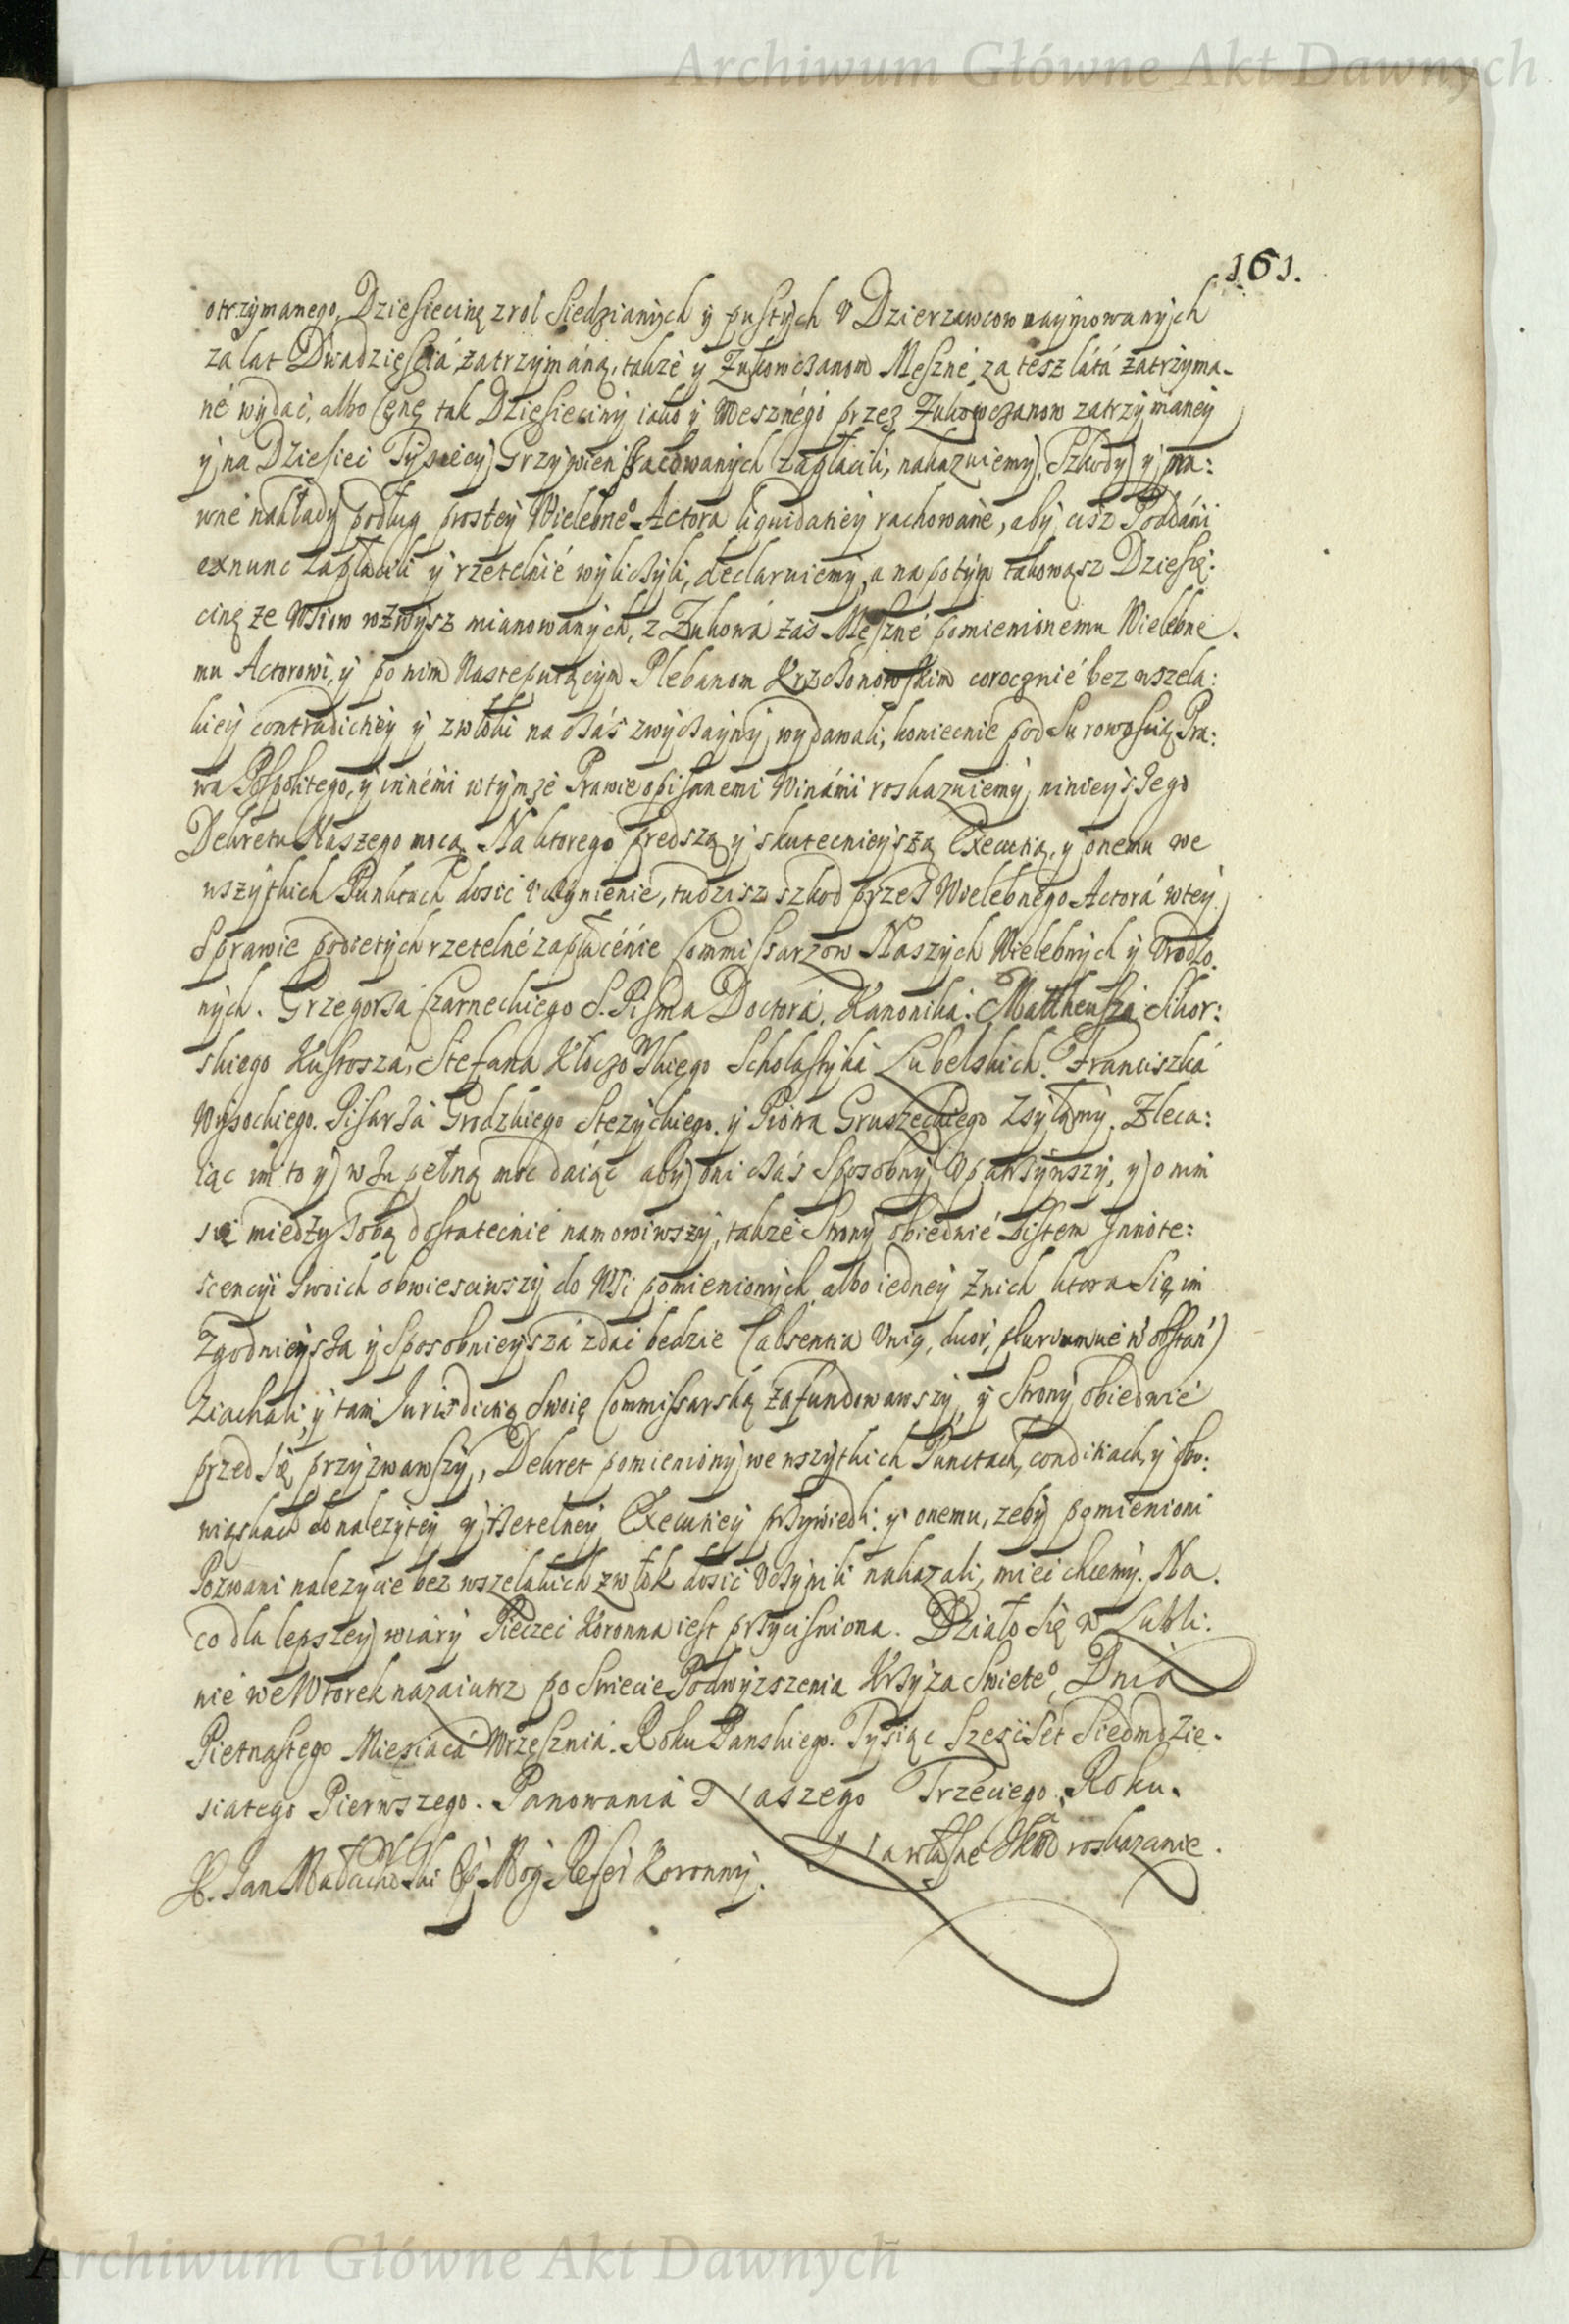 Archiwum Główne Akt Dawnych
161.
otrzymanego, Dziesiecinę z rol Siedzianych y pustych V Dzierzawcow naymowanych
za lat Dwadzieściá zatrzymáną, takze y Zukowczanom Meszné za tesz látá zatrzyma-
né wydać, albo Cenę tak Dziesieciny iako y Mesznégo przez Zukowczanow zatrzymaney
y na Dziesieć Tysięcy Grzywien szacowanych zapłacili, nakazuiemy, Szkody y pra:
wné nakłady podług prostey Wielebneº Actora liquidatiey rachowane, aby cisz Poddáni
exnunc zapłacili y rzetelnié wyliczyli, declaruiemy, a napotym takowąsz Dziesię:
cinę ze Wsiow wzwysz mianowanych, z Zukowá zaś Meszné pomienionemu Wielebne.
mu Actorowi, y po nim Nastepuiącym Plebanom Krzczonowskim corocznié bez wszela:
kiey contradictiey y zwłoki na czás zwyczayny wydawali, koniecznie pod Surowością Pra:
wa Pospolitego, y innémi w tymze Prawie opisanemi Winámi roskazuiemy ninieyszego
Dekretu Naszego mocą. Na ktorego predszą y skutecznieyszą Executią, y onemu we
wszytkich Punktach dosić vczynienie, tudzisz szkod przez Wielebnégo Actorá w tey
Sprawie podietych rzetelné zapłacénie Commissarzow Naszych Wielebnych y Vrodzo.
nych. Grzegorza Czarneckiego S. Pisma Doctorá, Kanoniká. Mattheusza Sikor:
skiego Kustosza, Stefana Kłoczowskiego Scholastyká Lubelskich. Franciszká
Wysockiego. Pisarza Grodzkiego Stezyckiego. y Piotra Gruszeckiego Zsyłamy. Zleca:
iąc im to y w Zupełną moc daiąc aby oni czás Sposobny Vpatrzywszy, y o nim
się miedzy Sobą dostatecznie namowiwszy, takze Strony obiedwié Listem Innote:
scencyi Swoich obwiesciwszy do Wsi pomienionych, albo iedney z nich ktora Się im
Zgodnieysza y Sposobnieysza zdać bedzie (absentia Vnig, duor, pluriumue ñ obstañ)
Ziachali, y tam Jurisdictią Swoię Commissarską zafundowawszy, y Strony obiedwié
przed Się przyzwawszy, Dekret pomieniony we wszytkich Punctach, conditiach, y obo:
wiąskach do nalezytey y rzetelney Executiey przywiedli. y onemu, zeby pomienioni
Pozwani nalezycie bez wszelakich zwłok dosić Vczynili nakazali, mieć chcemy. Na.
co dla lepszey wiáry Pieczeć Koronna iest przyciśniona. Działo Się w Lubli:
nie we Wtorek nazaiutrz po Swiecie Podwyzszenia Krzyza Swieteº, Dniá
Pietnastego Miesiaca Wrzesznia. Roku Panskiego. Tysiąc Szesćset Siedmdzie.
siatego Pierwszego. Panowania Naszego Trzeciego Roku.
X. Jan Małachowski Refer Koronny. Na własne roskazanie.
Archiwum Główne Akt Dawnych